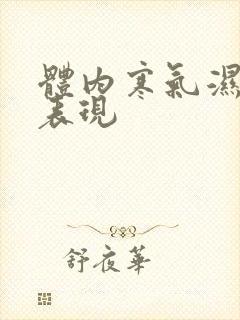 體內寒氣濕
表現
舒夜華